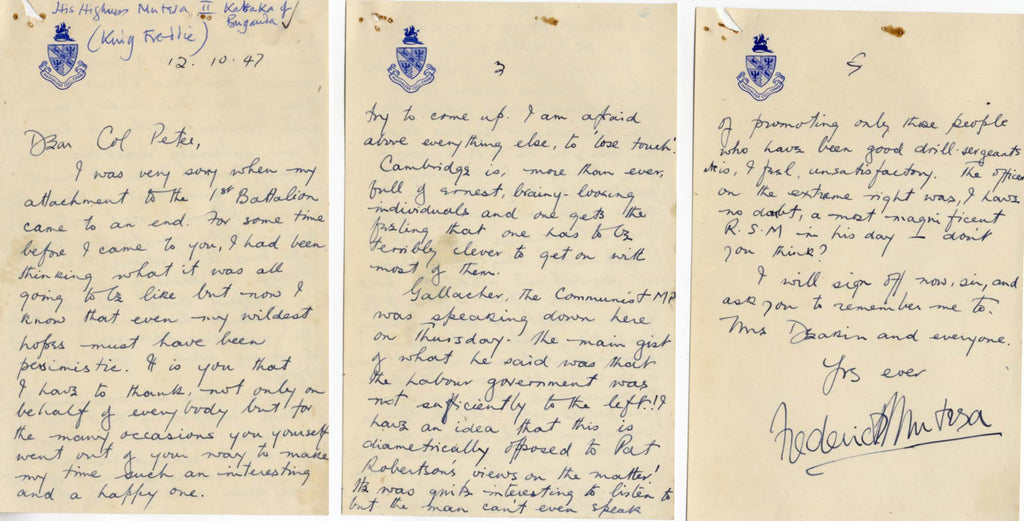 His Highness Mutesa II Kabaka of
Buganda
(King Freddie)
12.10.47
Dear Col Peter,
I was very sorry when my
attachment to the 1st Battalion
came to an end. For some time
before I came to you, I had been
thinking what it was all
going to be like but now I
know that even my wildest
hopes must have been
pessimistic. It is you that
I have to thank, not only on
behalf of everybody but for
the many occasions you yourself
went out of your way to make
my time such an interesting
and a happy one.
3
try to come up. I am afraid
above everything else, to 'lose touch'.
Cambridge is, more than ever,
full of earnest, brainy-looking
individuals and one gets the
feeling that one has to be
terribly clever to get on with
most of them.
Gallacher, the Communist MP
was speaking down here
on Thursday. The main gist
of what he said was that
the Labour government was
not sufficiently to the left!! I
have an idea that this is
diametrically opposed to Pat
Robertson's views on the matter!
It was quite interesting to listen to
but the man can't even speak
5
of promoting only those people
who have been good drill-sergeants
is, I feel, unsatisfactory. The officer
on the extreme right was, I have
no doubt, a most magnificent
R.S.M in his day — don't
you think?
I will sign off now, sir, and
ask you to remember me to.
Mrs Deakin and everyone.
Yrs ever
Frederick Mutesa